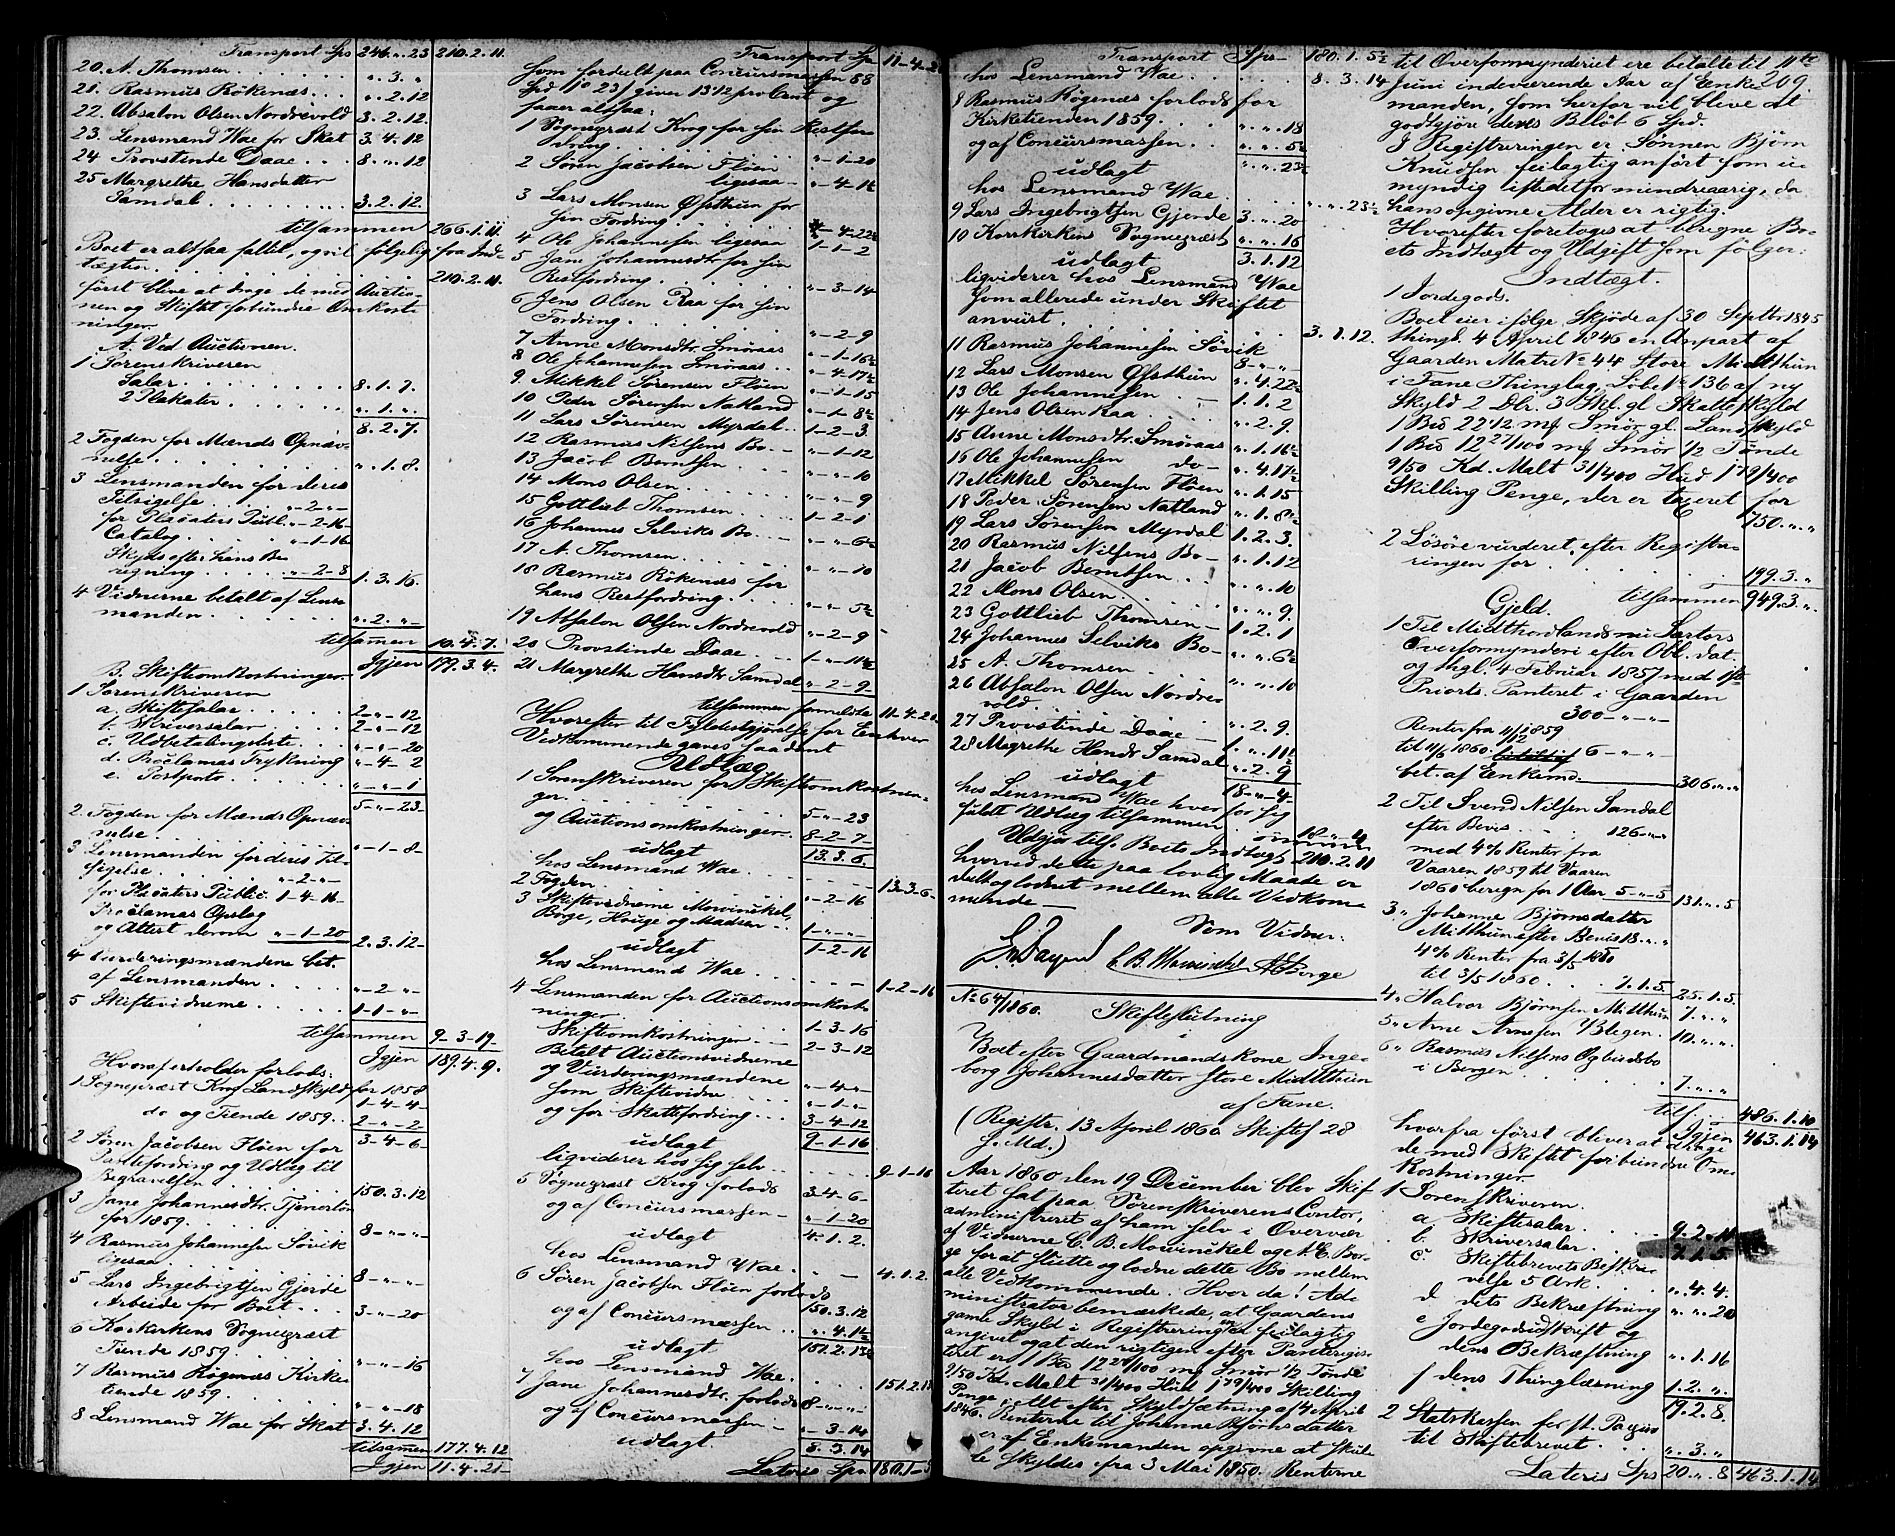 Transport Sps 246 " 23 210. 2. 11.
20. A. Thomsen . . . " 3. "
21. Rasmus Rökenæs . . " 2. 12
22. Absalon Olsen Nordrevold 3. 2. 12.
23. Lensmand Wae for Skat 3. 4. 12
24 Provstinde Daae . . . 8. " 12
25 Margrethe Hansdatter
Samdal . . . 3. 2. 12.
tilsammen 266. 1. 11.
Boet er altsaa fallit, og vil følgelig fra Ind-
tægten . . . 210. 2. 11.
først blive at drage de med Auctio-
nen og Skiftet forbundne Omkost-
ninger.
A. Ved Auctionen.
1 Sorenskriveren
Salar . . . 8. 1. 7.
2 Plakater . . . " 1. "
8. 2. 7.
2 Fogden for Mænds Opnæv-
nelse . . . " 1. 8.
3 Lensmanden for deres
Tilsigelse . . "-2-"-
for Placaters Publ. "-2-16-
Catalog . . . "-1-16
Skyds efter hans Be-
regning . . . "-2-8 1. 3. 16.
4 Vidnerne betalt af Lens-
manden . . . " 2. "-
tilsamen 10. 4. 7.
B. Skifteomkostninger. Igjen 199. 3. 4.
1 Sorenskriveren
a. Skiftesalar . . . 2-"-12
b. Skriversalar . . . 2-"-12
c. Udbetalingsliste . . . "-"-20
d. Proclamas Trykning "-4-2
e. Postporto . . . "-"-1
5-"-23-
2. Fogden for Mænds Opnæv-
nelse . . . "-1-8-
3 Lensmanden for deres Til-
sigelse . . . "-2-"-
for Placaters Public. 1-4-16-
Proclamas Opslag
og Attest derom "-1-20 2. 3. 12-
4 Vurderingsmændene bet.
af Lensmanden . . . "-2-"-
5 Skiftevidnerne . . . 1-1-"-
tilsammen 9-3-19-
Igjen 189. 4. 9.
Hvoraf erholder forlods:
1 Sognepræst Krog Landskyld for 1858
1-4-4-
do og Tiende 1859 . . 2-"-2
3-4-6-
2 Søren Jacobsen Fløen for
Pantefordring og Udlæg til
Begravelsen . . . 150. 3. 12
3 Jane Johannesdtr. Tjenerløn
for 1859 . . . 8-"-"-
4 Rasmus Johannesen Søvik
ligesaa . . . 8-"-"-
5 Lars Ingebrigtsen Gjerde
Arbeide for Boet . . . 3-"-20
6 Korskirkens Sognepræst
Tiende 1859 . . . "-"-16
7 Rasmus Røgenæs Kirke-
tiende 1859 . . . "-"-18
8 Lensmand Wae for Skat 3. 4. 12
tilsamen 177. 4. 12
Igjen 11. 4. 21-
Transport Sps 11-4-21
som fordelt paa Concursmassen 88
Spd 1 " 23 s giver 13 1/2 procent og
faaer altsaa:
1 Sognepræst Krog for sin Restfor-
dring . . . "-1-20
2 Søren Jacobsen Fløen
ligesaa- "-4-1½
3 Lars Monsen Øfsthun for
sin Fordring . . . "-4-22½
4 Ole Johannesen ligesaa 1-1-2
5 Jane Johannesdtr for sin
Restfordring . . . "-3-14
6 Jens Olsen Raa for sin
Fordring . . . "-2-9
7 Anne Monsdtr. Smøraas "-1-16½
8 Ole Johannesen Smøraas . . "-4-17½
9. Mikkel Sørensen Fløen "-1-15
10 Peder Sørensen Natland "-1-8½
11 Lars Sørensen Myrdal . . 1-2-3
12 Rasmus Nilsens Bo . - "-1-12
13 Jacob Berntsen . . . "-"-10
14 Mons Olsen . . . "-"-9
15 Gottlieb Thomsen . . . 1-2-1
16 Johannes Selviks Bo . . "-"-6½
17 A. Thomsen . . . "-"-10
18 Rasmus Rökenæs for
hans Restfordring . . . "-"-5½
19 Absalon Olsen Nordrevold "-2-9
20 Provstinde Daae . . . 1-"-11½
21 Margrethe Hansdtr Samdal "-2-9
tilsammen formeldte 11-4-21
Hvorefter til Fyldestgjørelse for Enhver
Vedkommende gaves saadant
Udlæg
1 Sorenskriveren for Skifteomkostnin-
ger . . . 5-"-23
og Auctionsomkostninger . . 8-2-7
udlagt 13. 3. 6.
hos Lensmand Wae . . . 13-3-6-
2 Fogden . . . "-2-16
3 Skiftevidnerne Mowinckel,
Borge, Houge og Madsen . . 1-"-"-
udlagt 1-2-16
hos Lensmand Wae . . . 1-2-16
4 Lensmanden for Auctionsomkost-
ninger . . . 1-3-16
Skifteomkostninger . . . 2-3-12
Betalt Auctionsvidnerne
og Vurderingsmændene "-4-"-
som Skiftevidne . . . "-1-"-
og for Skattefordring . . . 3-4-12
udlagt 9-1-16
ligviderer hos sig selv . . . 9-1-16
5 Sognepræst Krog forlods 3-4-6-
og af Concursmassen - "-1-20
udlagt 4. 1. 2.
hos Lensmand Wae . . . 4. 1. 2.
6 Søren Jacobsen Fløen forlods
150. 3. 12
og af Concursmassen . . " 4. 1½
udlagt 151. 2. 13½
hos Lensmand Wae . . . 151. 2. 13½
7 Jane Johannesdtr. forlods 8-"-"-
og af Concursmassen - "-3-14
udlagt 8. 3. 14
Lateris Sps. 180. 1-5½
Transport Sps- 180. 1. 5½
hos Lensmand Wae . . . 8. 3. 14
8 Rasmus Røgenæs forlods for
Kirketienden 1859 . . . " " 18
og af Concursmassen . . " " 5½
udlagt " " 23½
hos Lensmand Wae . . . " " 23½
9 Lars Ingebrigtsen Gjerde 3. " 20
10 Korskirkens Sognepræst " " 16
udlagt 3. 1. 12
ligviderer hos Lensmand Wae
som allerede under Skiftet
anviist . . . 3. 1. 12.
11 Rasmus Johannesen Søvik
8-"-"-
12 Lars Monsen Øfsthun " 4. 22½
13 Ole Johannesen . - 1. 1. 2
14 Jens Olsen Raa . . . " 2. 9.
15 Anne Monsdtr. Smøraas " 1. 16½
16 Ole Johannesen do- " 4. 17½
17 Mikkel Sørensen Fløen " 1. 15
18 Peder Sørensen Natland " 1. 8½
19 Lars Sørensen Myrdal 1. 2. 3.
20 Rasmus Nilsens Bo- " 1. 12
21 Jacob Berntsen . . . " " 10
22 Mons Olsen . . . " " 9.
23 Gottlieb Thomsen - 1. 2. 1
24 Johannes Selviks Bo- " " 6½
25 A. Thomsen . . . " " 10
26 Absalon Olsen Nordre-
vold . . . " 2. 9.
27 Provstinde Daae - 1. " 11½
28 Magrethe Handr Samdal " 2. 9
udlagt 18-"-4-
hos Lensmand Wae hver for sig
fuldt Udlæg tilsammen . . . 18-"-4
Udgjør tils. Boets Indtægt 210. 2. 11
hvorved dette paa lovlig Maade er
delt og loddet mellem alle Vedkom-
mende-
Som Vidner:
C. B. Mowinckel A C Borge
No 64/1860. Skifteslutning
i
Boet efter Gaardmandskone Inge-
borg Johannesdatter store Midtthun
af Fane.
(Registr. 13 April 1860 Skiftes 28
s. Md.)
Aar 1860 den 19 December blev Skif-
teret sat paa Sorenskriverens Contor,
administreret af ham selv i Overvær
af Vidnerne C. B. Mowinckel og A. C. Bor-
ge for at slutte og lodne dette Bo mellem
alle Vedkommende. Hvor da: Ad-
ministrator bemærkede, at Gaardens
gamle Skyld i Registreringen er feilagtig
angivet og at den rigtigen efter Panteregis-
teret er 1 Bos 12 27/100 mk Smør 1/2 Tønde
9/50 Kd. Malt 31/400 Hud 1 79/400 Skilling
Penge, Alt efter Skyldsætning af 4 April
1846. Renterne til Johanne Bjørnsdatter
er af Enkemanden opgivne at skul-
le skyldes fra 3 Mai 1850. Renterne
til Overformynderiet ere betalte til 11te
209.
Juni indeværende Aar af Enke-
manden, som herfor vil blive at
godtgjøre deres Beløb 6 Spd.
I Registreringen er Sønnen Bjørn
Knudsen feilagtig anført som u-
myndig istedetfor mindreaarig, da
hans opgivne Alder er rigtig.
Hvorefter foretoges at beregne Bo-
ets Indtægt og Udgift som følger:
Indtægt.
1 Jordegods.
Boet eier ifølge Skjøde af 30 Septbr 1845
thingl. 4 April 1846 en Anpart af
Gaarden Matr No 44 Store Midtthun
i Fane Thinglag, Løbe No 136 af ny
Skyld 2 Dlr. 3 Skl. gl Skatteskyld
1 Bos 22 1/2 mk Smør gl. Landskyld
1 Bos 12 27/100 mk Smør 1/2 Tønde
9/50 Kd. Malt 31/400 Hud 1 79/400
Skilling Penge, der er taxeret for
750. " "
2 Løsøre vurderet, efter Registre-
ringen for . . . 199. 3. "
tilsammen 949. 3. "
Gjeld.
1 Til Midthordlands nu Sartors
Overformynderi efter Obl. dat.
og thgl. 4 Februar 1857 med 1ste
Priorts. Panteret i Gaarden
300-"-"-
Renter fra 11/12 1859
til 11/6 1860. 6-"-"-
bet. af Enkemd. 306. " "
2 Til Svend Nilsen Sandal
efter Bevis . . . 126-"-"
med 4% Renter fra
Vaaren 1859 til Vaaren
1860 beregn for 1 Aar 5-"-5 131. " 5
3 " Johanne Bjørnsdatter
Midtthun efter Bevis 18. " "
4% Renter fra 3/5 1850
til 3/5 1860 . . . 7. 1. 5. 25. 1. 5.
4 " Halvor Bjørnsen Midtthun 7. " "
5 " Arne Arnesen Iblegen . . 10. " "
6 " Rasmus Nilsen
i Bergen . . . 7. " "
tils. . . 486. 1. 10
Igjen 463. 1. 14
hvorfra først bliver at drage
de med Skiftet forbundne Om-
kostninger.
1 Sorenskriveren.
a Skiftesalar . . . 9. 2. 11
b. Skriversalar . . . 7. 1. 5
c. Skiftebrevets Beskri-
velse 5 Ark. . . " 4. 4.
d dets Bekræftning " " 20
e Jordegodsudskrift og
dens Bekræftning " 1. 16
f dens Thinglæsning 1. 2. "
19. 2. 8.
2 Statskassen for st. Papir
til Skiftebrevet . . . " 3. "
Lateris Sps 20. " 8 463. 1. 14